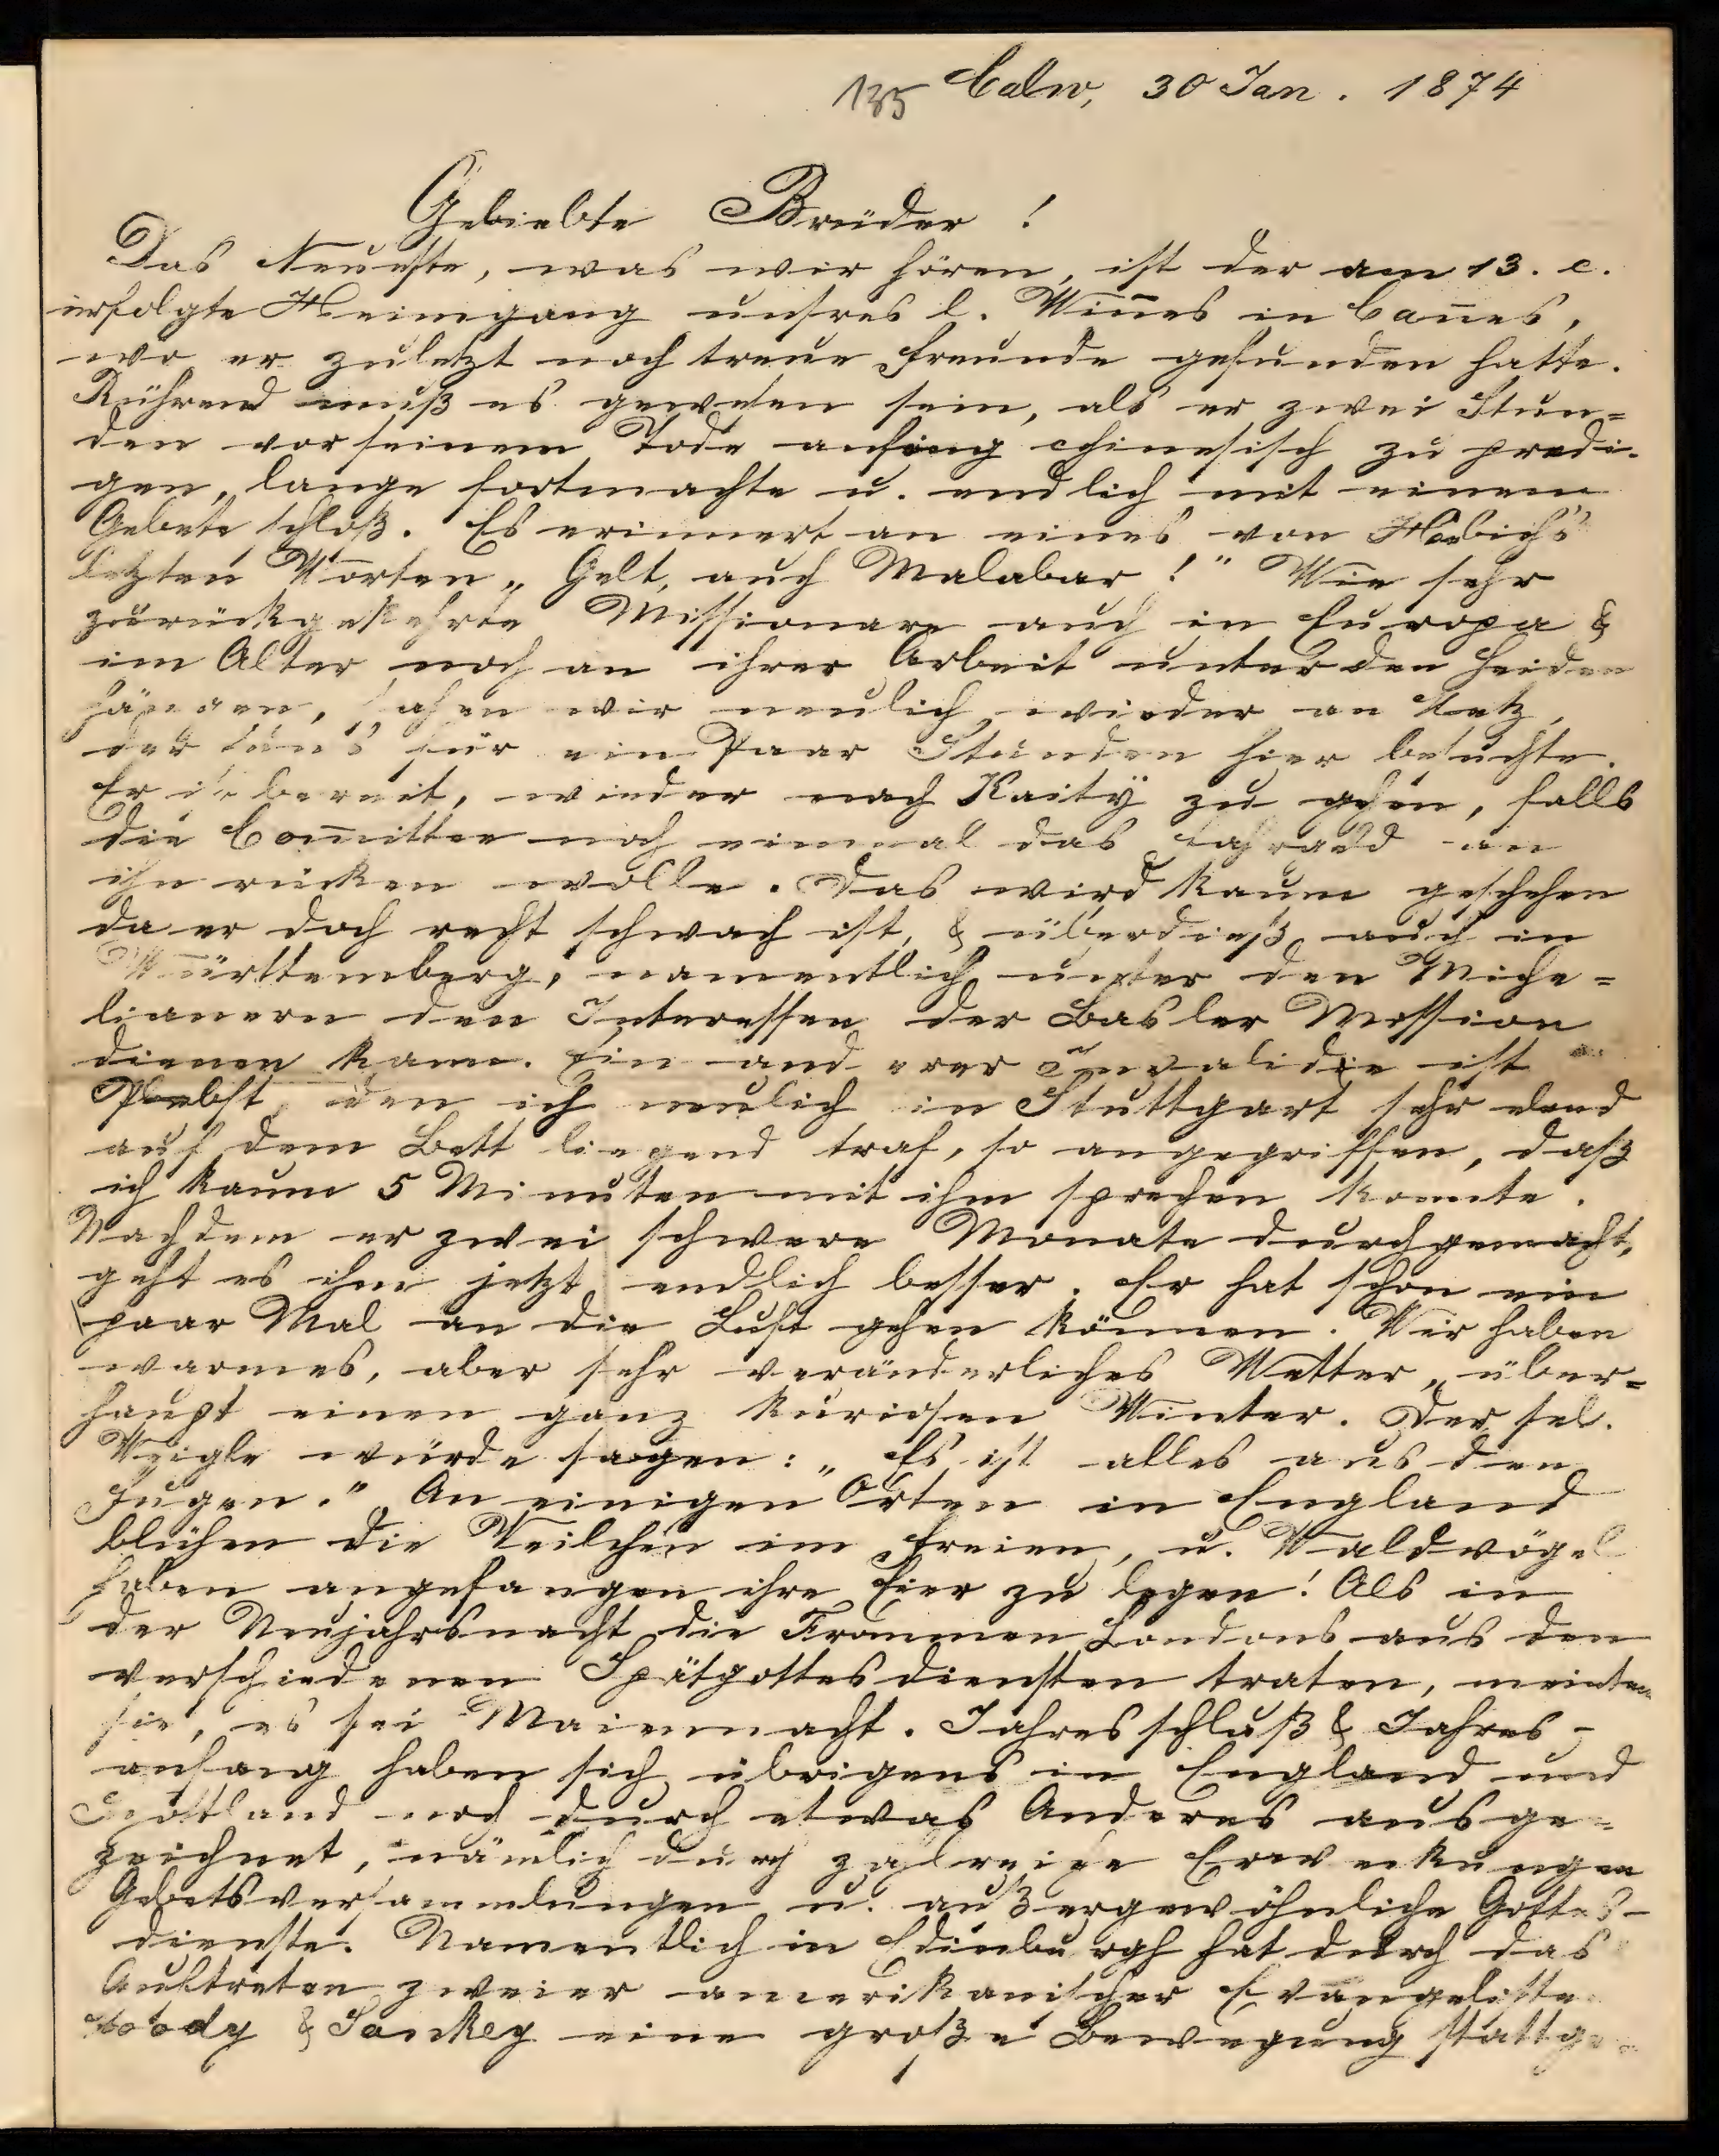 135 Calw, 30 Jan. 1874
Geliebte Brüder!
Das Neueste, was wir hören, ist der am 13. c.
erfolgte Heimgang unsres l. Win̄es in Can̄es,
wo er zuletzt noch treue Freunde gefunden hatte.
Rührend muß es gewesen sein, als er zwei Stun=
den vor seinem Tode anfing chinesisch zu predi-
gen, lange fortmachte u. endlich mit einem
Gebete schloß. Es erinnert an eines von Hebich's
letzten Worten „Gelt, auch Malabar!" Wie sehr
zurückgekehrte Missionare auch in Europa &
im Alter noch an ihrer Arbeit unter den Heiden
hängen, sahen wir neulich wieder an Metz,
der uns für ein Paar Stunden hier besuchte.
Er ist bereit, wieder nach Kaity zu gehen, falls
die Com̄ittee noch einmal das an
ihn rücken wolle. Das wird kaum geschehen
da er doch recht schwach ist, & überdieß auch in
Württemberg, namentlich unter den Miche=
lianern den Interessen der Basler Mission
dienen kann. Ein anderer Invalide ist
Plebst, den ich neulich in Stuttgart sehr elend
auf dem Bett liegend traf, so angegriffen, daß
ich kaum 5 Minuten mit ihm sprechen konnte.
Nachdem er zwei schwere Monate durchgemacht,
geht es ihm jetzt endlich besser. Er hat schon ein
paar Mal an die Luft gehen können. Wir haben
warmes, aber sehr veränderliches Wetter, über=
haupt einen ganz kuriosen Winter. Der sel.
Weigle würde sagen: „Es ist alles aus den
Fugen." An einigen Orten in England
blühen die Veilchen im Freien, u. Waldvögel
haben angefangen ihre Eier zu legen! Als in
der Neujahrsnacht die Frommen Londons aus den
verschiedenen Spätgottesdiensten traten, meinten
sie, es sei Maiennacht. Jahresschluß & Jahres-
anfang haben sich übrigens in England und
Schottland noch durch etwas Anderes ausge=
zeichnet, nämlich durch zahlreiche Erweckungen
Gebetsversammlungen u. außergewöhnliche Gottes-
dienste. Namentlich in Edinburgh hat durch das
Auftreten zweier amerikanischer Evangelisten
Moody & Sankey eine große Bewegung stattge